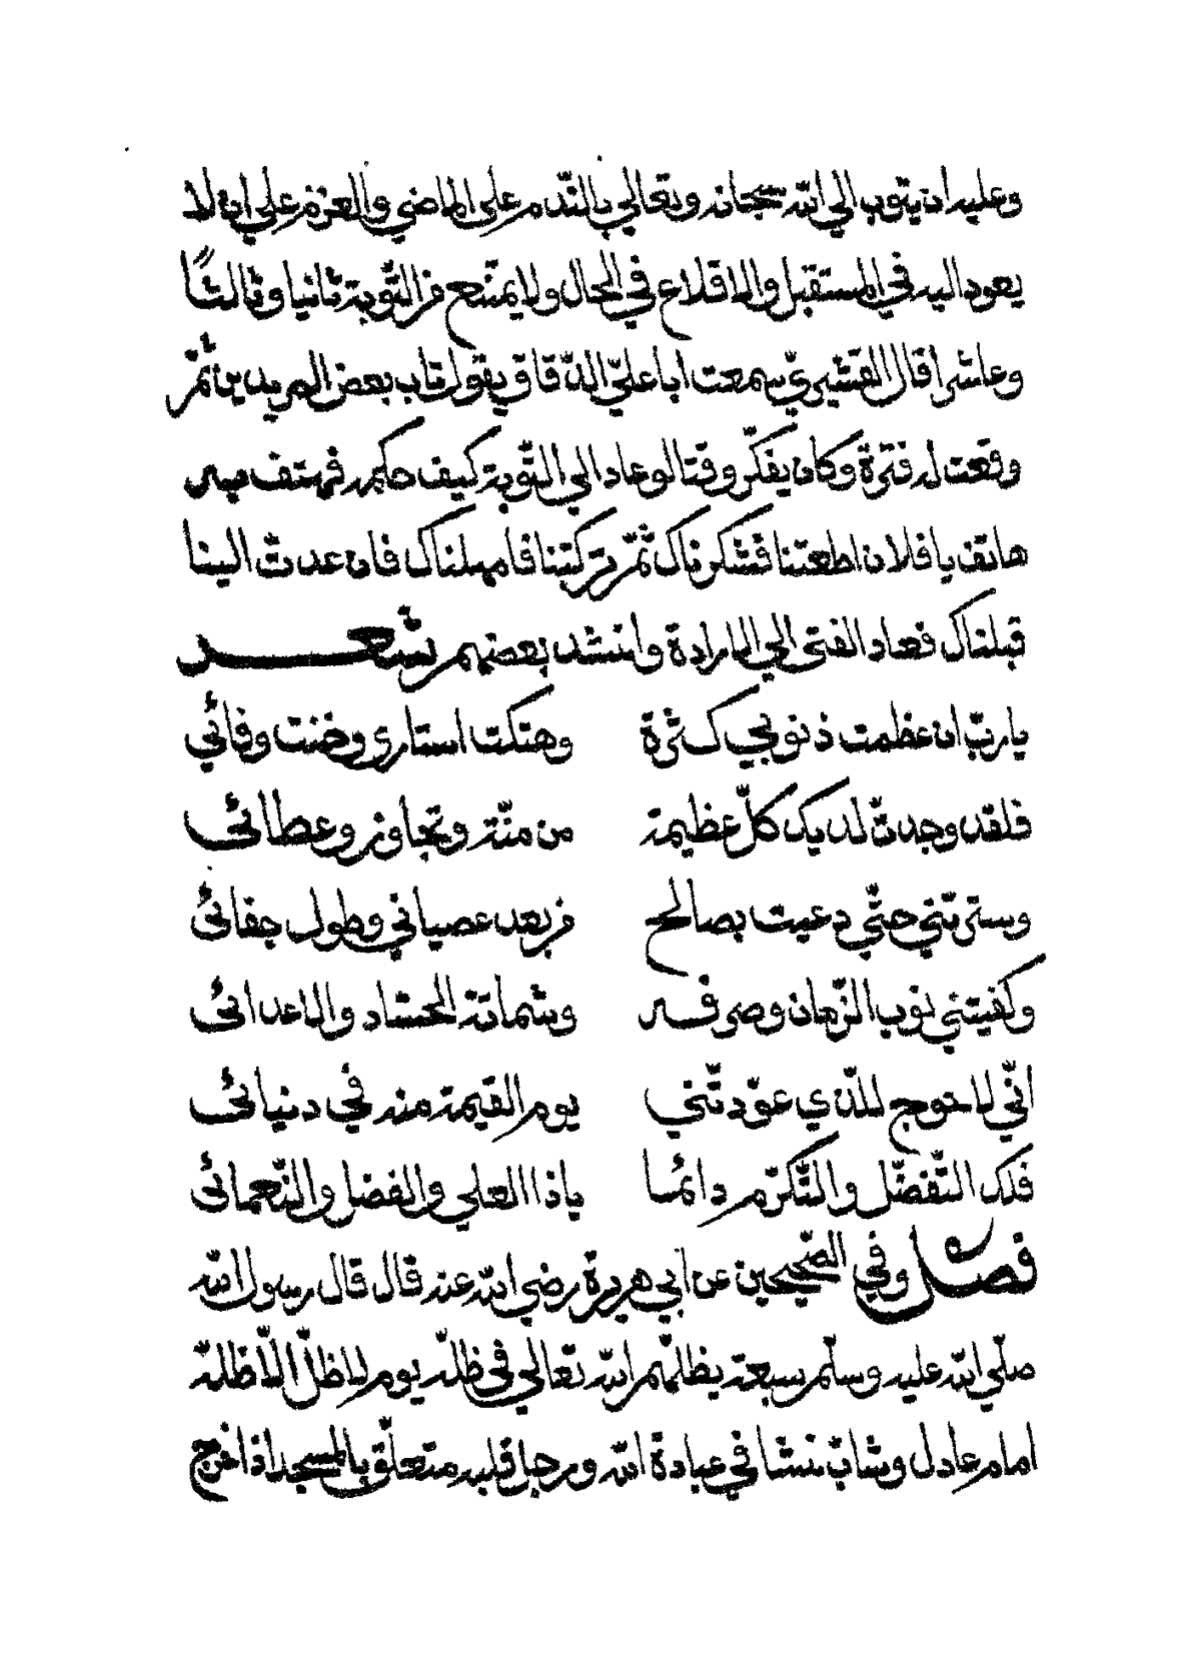 وعليه ان يتوب الي الله سبحانه وتعالي بالنّدم علي الماضي والعزم علي ان لا
يعود اليه في المستقبل والاقلاع في الحال ولا يمتنع من التّوبة ثانيا وثالثًا
وعاشرا قال القشيريّ سمعت ابا عليّ الدّقاق يقول تاب بعض المريدين ثمّ
وقعت له فترة وكان يفكّر وقتا لو عاد الي التّوبة كيف حكمه فهتف به
هاتف يا فلان اطعتنا فشكرناك ثمّ تركتنا فامهلناك فان عدت الينا
قبلناك فعاد الفتى الي الارادة وانشد بعضهم شعر
يا ربّ ان عظمت ذنوبي كثرة وهتكت استاري وخنت وفائي
فلقد وجدت لديك كلّ عظيمة من منّة وتجاوز وعطائي
وسترتني حتّي دعيت بصالح من بعد عصياني وطول جفائي
وكفيتني نوب الزّمان وصرفه وشماتة الحسّاد والاعدائي
انّي لاحوج للّذي عوّدتّني يوم القيمة منه في دنيائي
فلك التّفضّل والتّكرّم دائما ياذا العلي والفضل والنّعمائي
فصل وفي الصّحيحين عن ابي هريرة رضي الله عنه قال قال رسول الله
صلّي الله عليه وسلّم سبعة يظلّهم الله تعالي في ظلّه يوم لا ظلّ الّا ظلّه
امام عادل وشابّ نشا في عبادة الله ورجل قلبه متعلّق بالمسجد اذا خرج